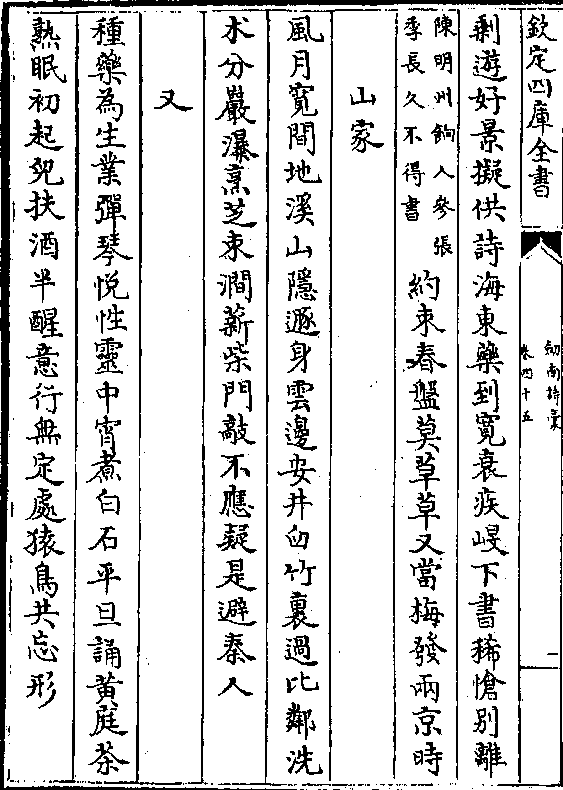 欽定四庫全書
劍南詩藁
卷四十五
一
剩遊好景擬供詩海東藥到寬衰疾岷下書稀愴別離
陳明州餉人參張
季長久不得書
約束春盤莫草草又當梅發兩京時
山家
風月寬間地溪山隱遯身雲邊安井臼竹裏過比鄰洗
朮分巖瀑烹芝束澗薪柴門敲不應疑是避秦人
又
種藥為生業彈琴悅性靈中宵煮白石平旦誦黃庭茶
熟眠初起兒扶酒半醒意行無定處猿鳥共忘形